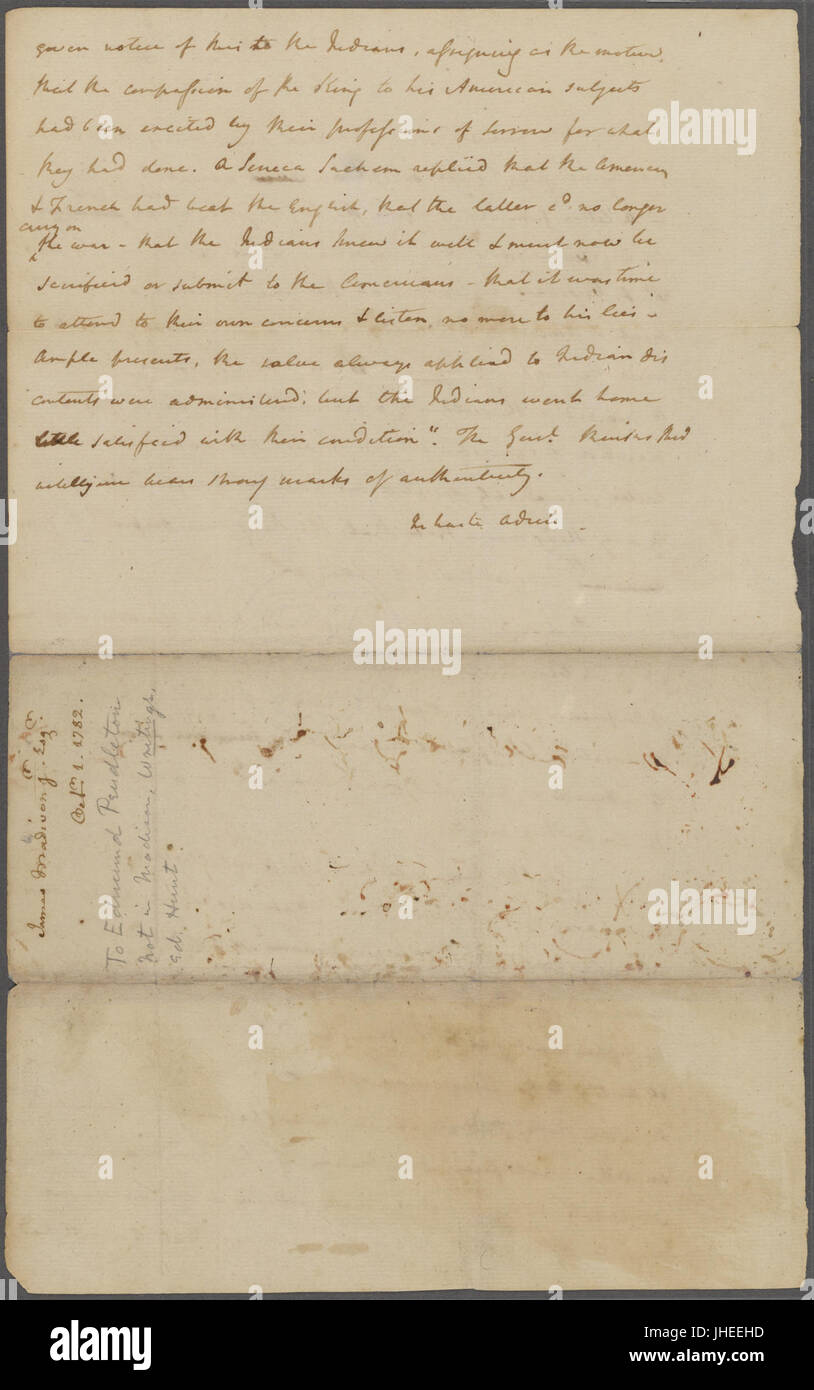 given notice of this to the Indians, assigning as the motive,
that the compassion of the King to his American subjects
had been excited by their professions of sorrow for what
they had done. A Seneca Sachem replied that the American
& French had beat the English, that the latter cd. no longer
carry on
the war – that the Indians knew it well & must now be
sacrificed or submit to the Americans – that it was time
to attend to their own concerns & listen no more to his lies –
Ample presents, the salve always applied to Indian dis
contents were administered; but the Indians went home
little satisfied with their condition". The Genl. thinks this
intelligence bears strong marks of authenticity.
In haste Adieu
James Madison Jr. Esqr.
Octr. 1. 1782.
To Edmund Pendleton
Not in Madison, Writings,
ed. Hunt.
alamy
Image ID: JHEEHD
www.alamy.com